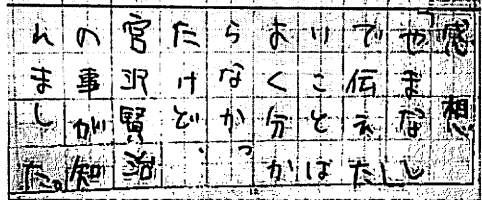 感想
「やまなし」
で伝えた
いことは
よく分か
らなかっ
たけど、
宮沢賢治
の事が知
れました。